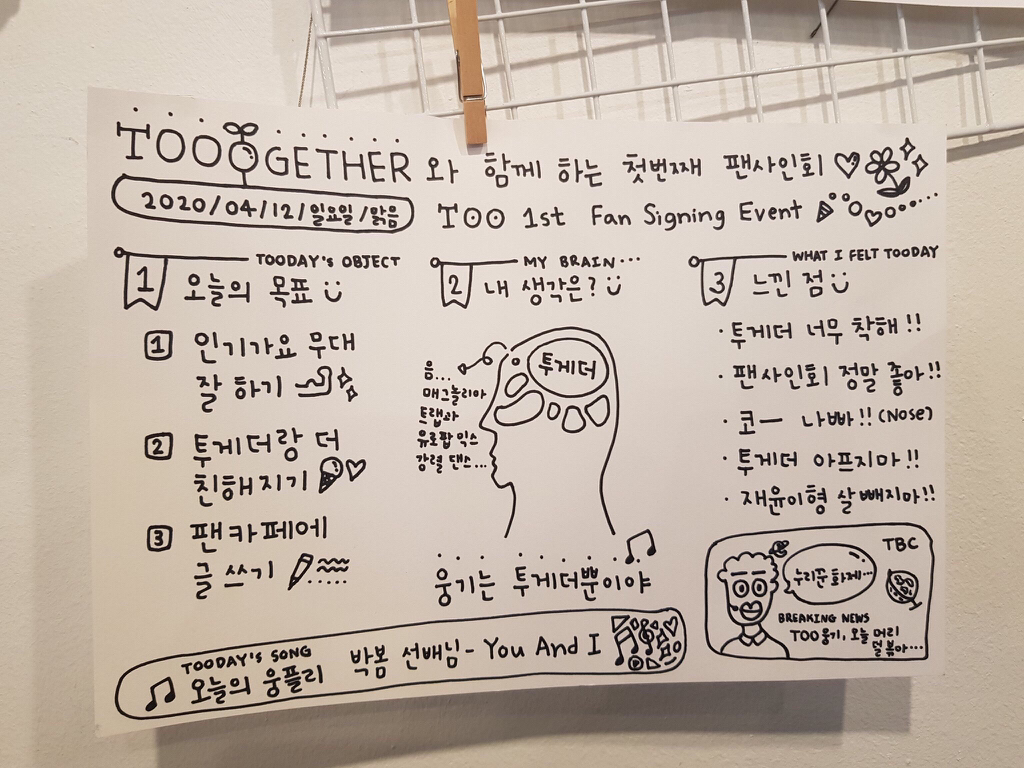 TOOOGETHER 와 함께 하는 첫번째 팬사인회
2020/04/12/일요일/맑음
TOO 1st Fan Signing Event
1 TOODAY'S OBJECT
오늘의 목표
1 인기가요 무대
잘 하기
2 투게더랑 더
친해지기
3 팬카페에
글 쓰기
2 MY BRAIN...
내 생각은?
투게더
음...
매그놀리아
트랩과
유로팝 믹스
강렬 댄스...
웅기는 투게더뿐이야
3 WHAT I FELT TOODAY
느낀 점
· 투게더 너무 착해!!
· 팬사인회 정말 좋아!!
· 코ー 나빠!! (NOSE)
· 투게더 아프지마!!
· 재윤이형 살 빼지마!!
TBC
누리꾼 화제...
BREAKING NEWS
TOO 웅기, 오늘 머리
덜 볶아...
TOODAY'S SONG
오늘의 웅플리
박봄 선배님 - You And I